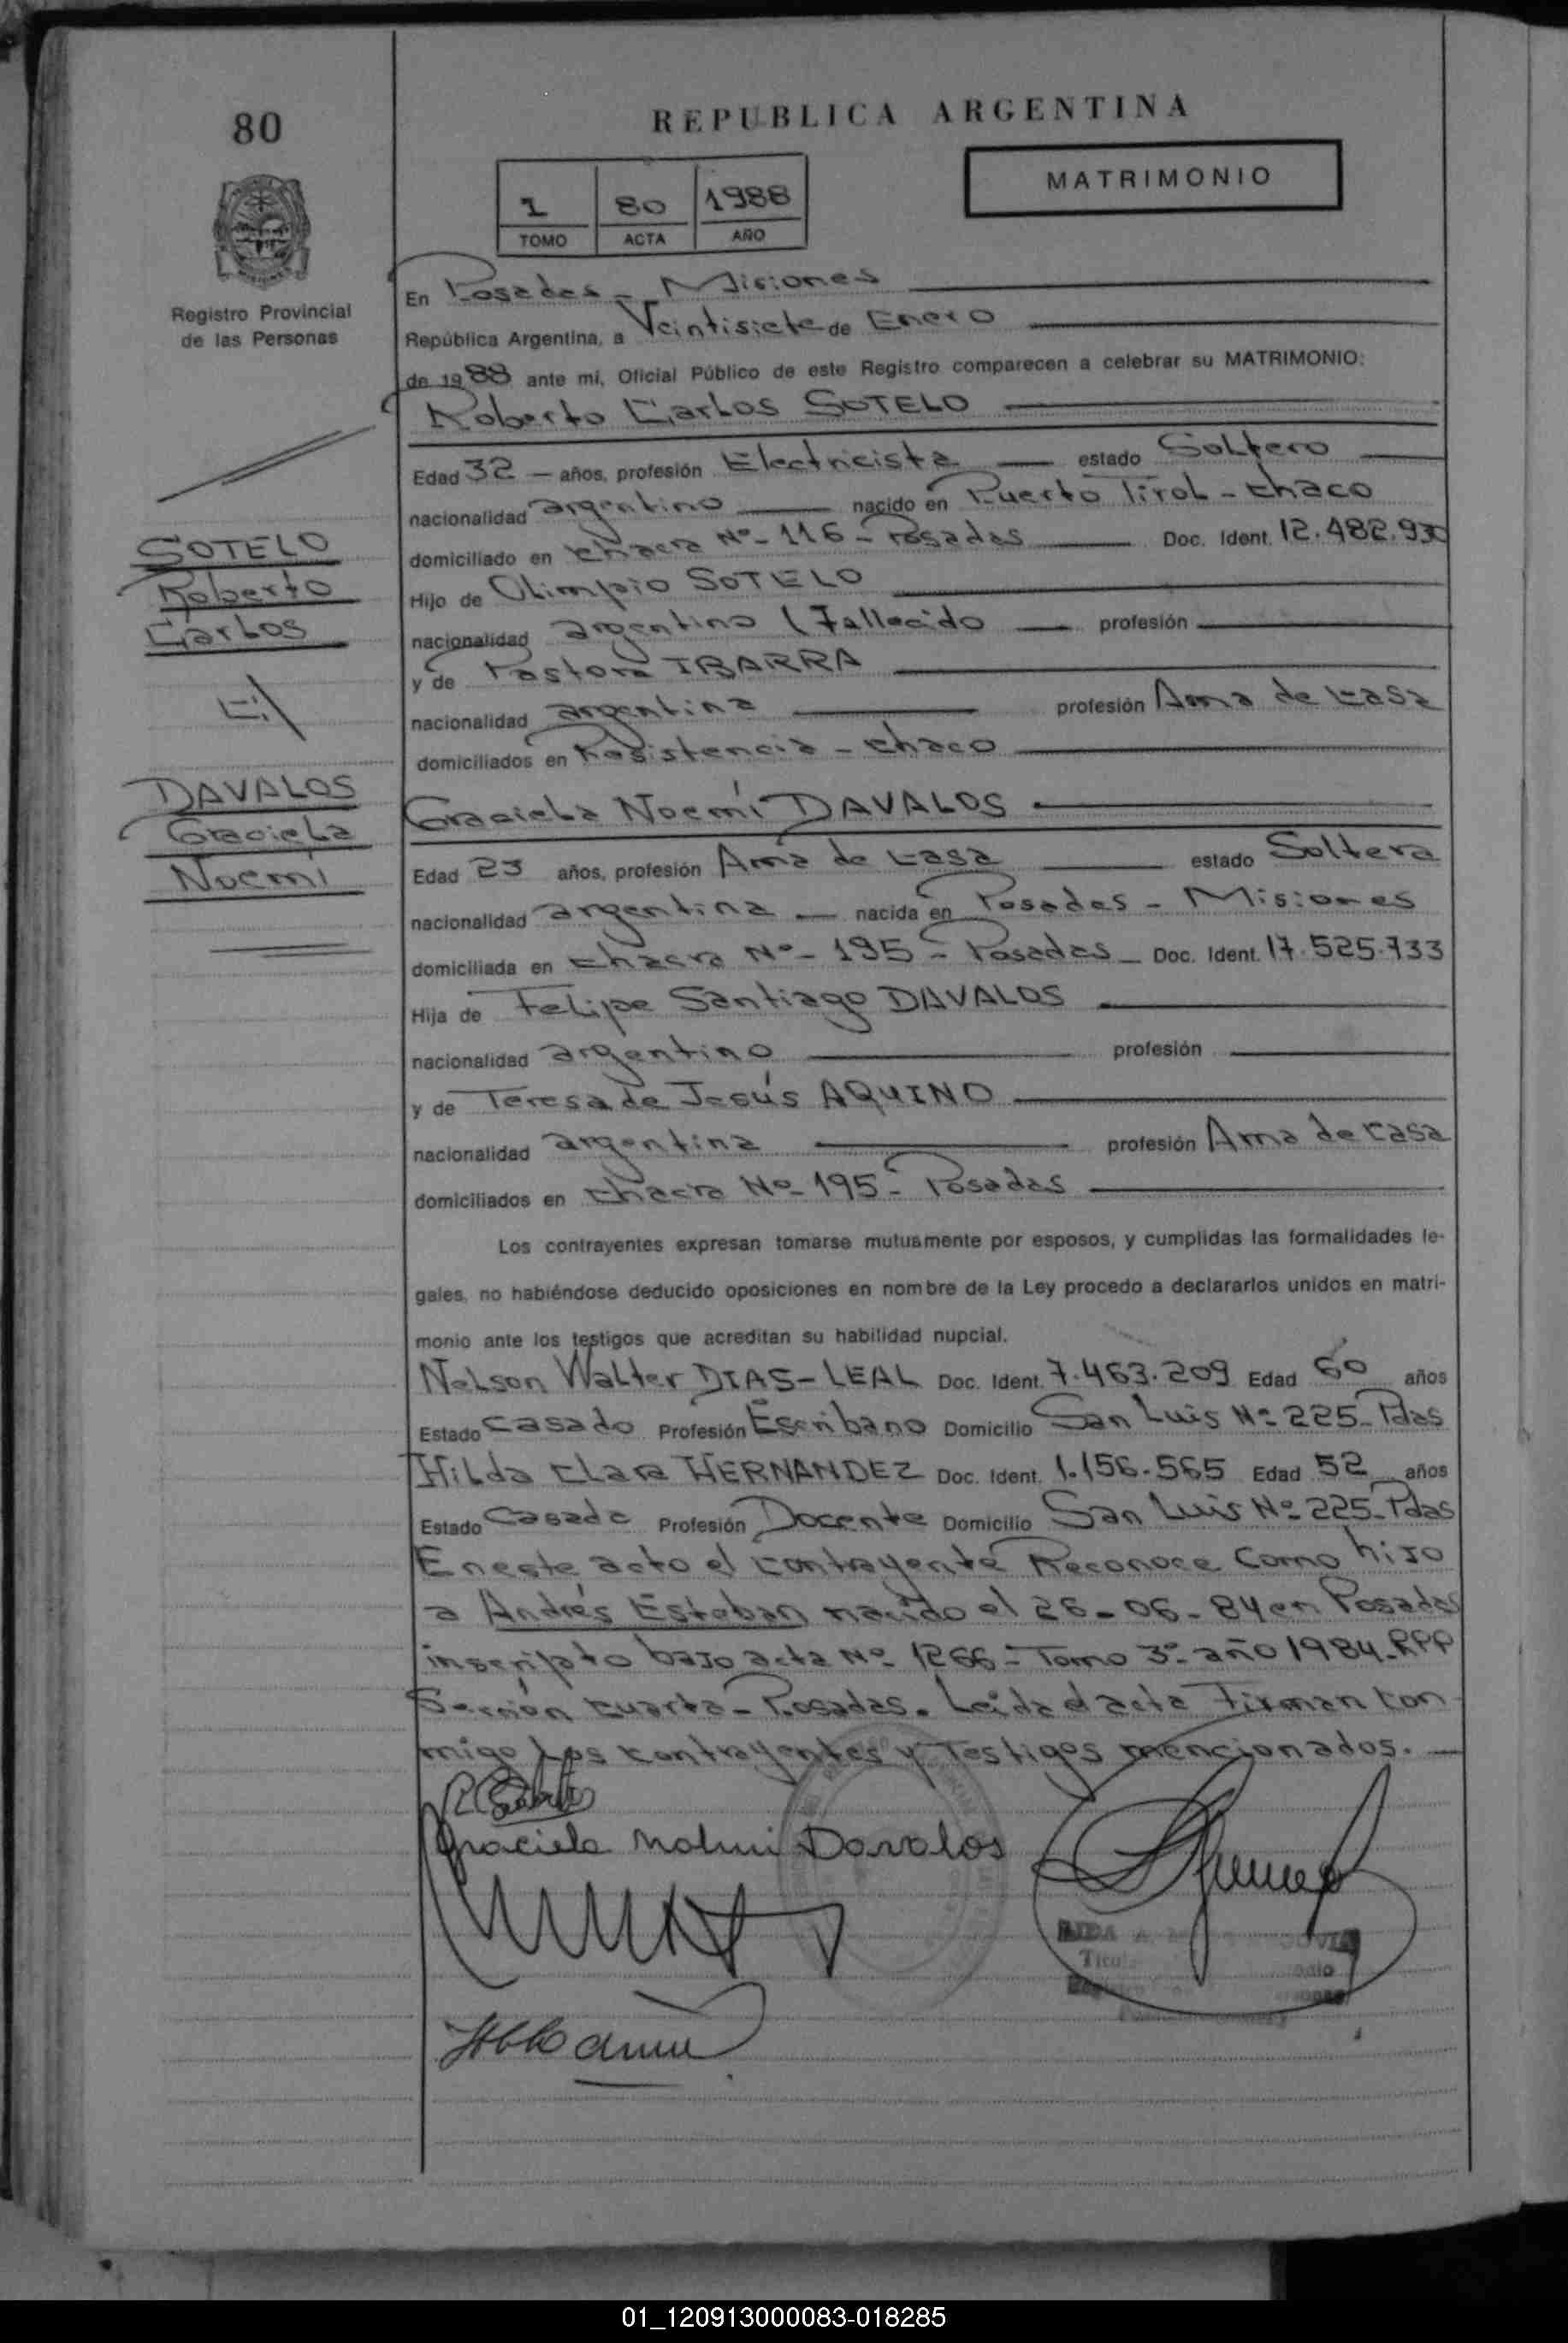 80
REPUBLICA ARGENTINA
MATRIMONIO
1 80 1988
TOMO ACTA AÑO
Registro Provincial
de las Personas
En Posadas - Misiones
República Argentina, a Veintisiete de Enero
de 1988 ante mi, Oficial Público de este Registro comparecen a celebrar su MATRIMONIO:
Roberto Carlos SOTELO
Edad 32 — años, profesión Electricista — estado Soltero
nacionalidad argentino — nacido en Puerto Tirol - Chaco
domiciliado en Chacra Nº- 116 - Posadas — Doc. Ident. 12.482.930
Hijo de Olimpio SOTELO
nacionalidad argentino (Fallecido — profesión
y de Pastora IBARRA
nacionalidad argentina — profesión Ama de Casa
domiciliados en Resistencia - Chaco
SOTELO
Roberto
Carlos
DAVALOS
Graciela
Noemí
Graciela Noemí DAVALOS
Edad 23 años, profesión Ama de Casa — estado Soltera
nacionalidad argentina — nacida en Posadas - Misiones
domiciliada en Chacra Nº- 195 - Posadas - Doc. Ident. 17.525.733
Hija de Felipe Santiago DAVALOS
nacionalidad argentino — profesión
y de Teresa de Jesús AQUINO
nacionalidad argentina — profesión Ama de Casa
domiciliados en Chacra Nº- 195 - Posadas
Los contrayentes expresan tomarse mutuamente por esposos, y cumplidas las formalidades le-
gales, no habiéndose deducido oposiciones en nombre de la Ley procedo a declararlos unidos en matri-
monio ante los testigos que acreditan su habilidad nupcial.
Nelson Walter DIAS-LEAL Doc. Ident. 7.463.209 Edad 60 años
Estado Casado Profesión Escribano Domicilio San Luis Nº 225- Pdas
Hilda Clara HERNANDEZ Doc. Ident. 1.156.565 Edad 52 años
Estado Casada Profesión Docente Domicilio San Luis Nº 225- Pdas
En este acto el contrayente Reconoce como hijo
a Andrés Esteban nacido el 26-06-84 en Posadas
inscripto bajo acta Nº- 1266 - Tomo 3º- año 1984-RPP
Sección Cuarta - Posadas. Leída el acta Firman con-
migo los contrayentes y Testigos mencionados. —
Graciela Nohmi Davalos
01_120913000083-018285